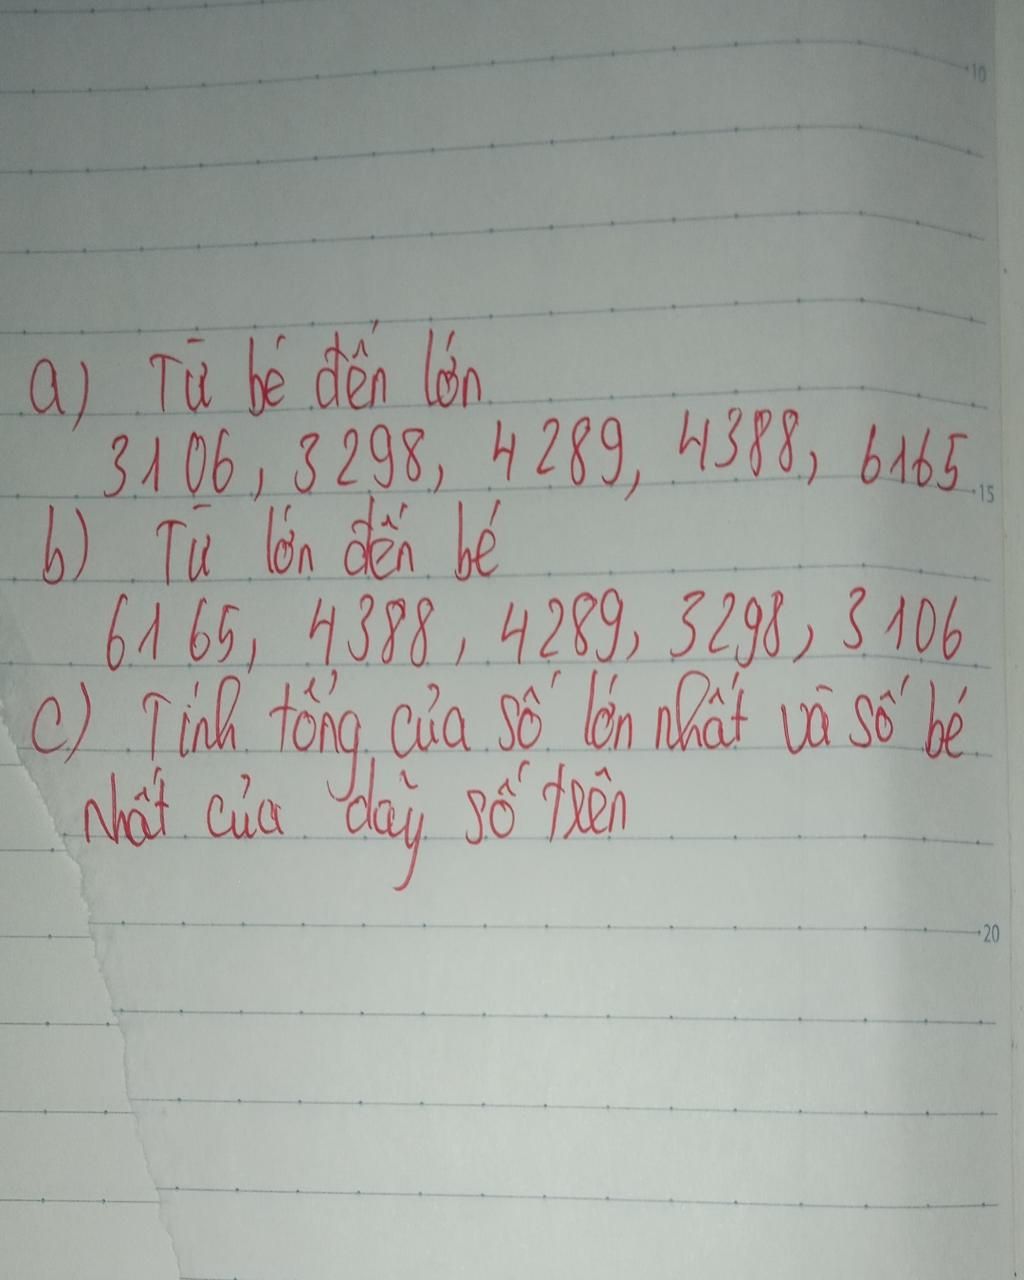 10
a) Từ bé đến lớn
3106, 3298, 4289, 4388, 6165
15
b) Từ lớn đến bé
6165, 4388, 4289, 3298, 3106
c) Tính tổng của số lớn nhất và số bé
nhất của dãy số trên
20